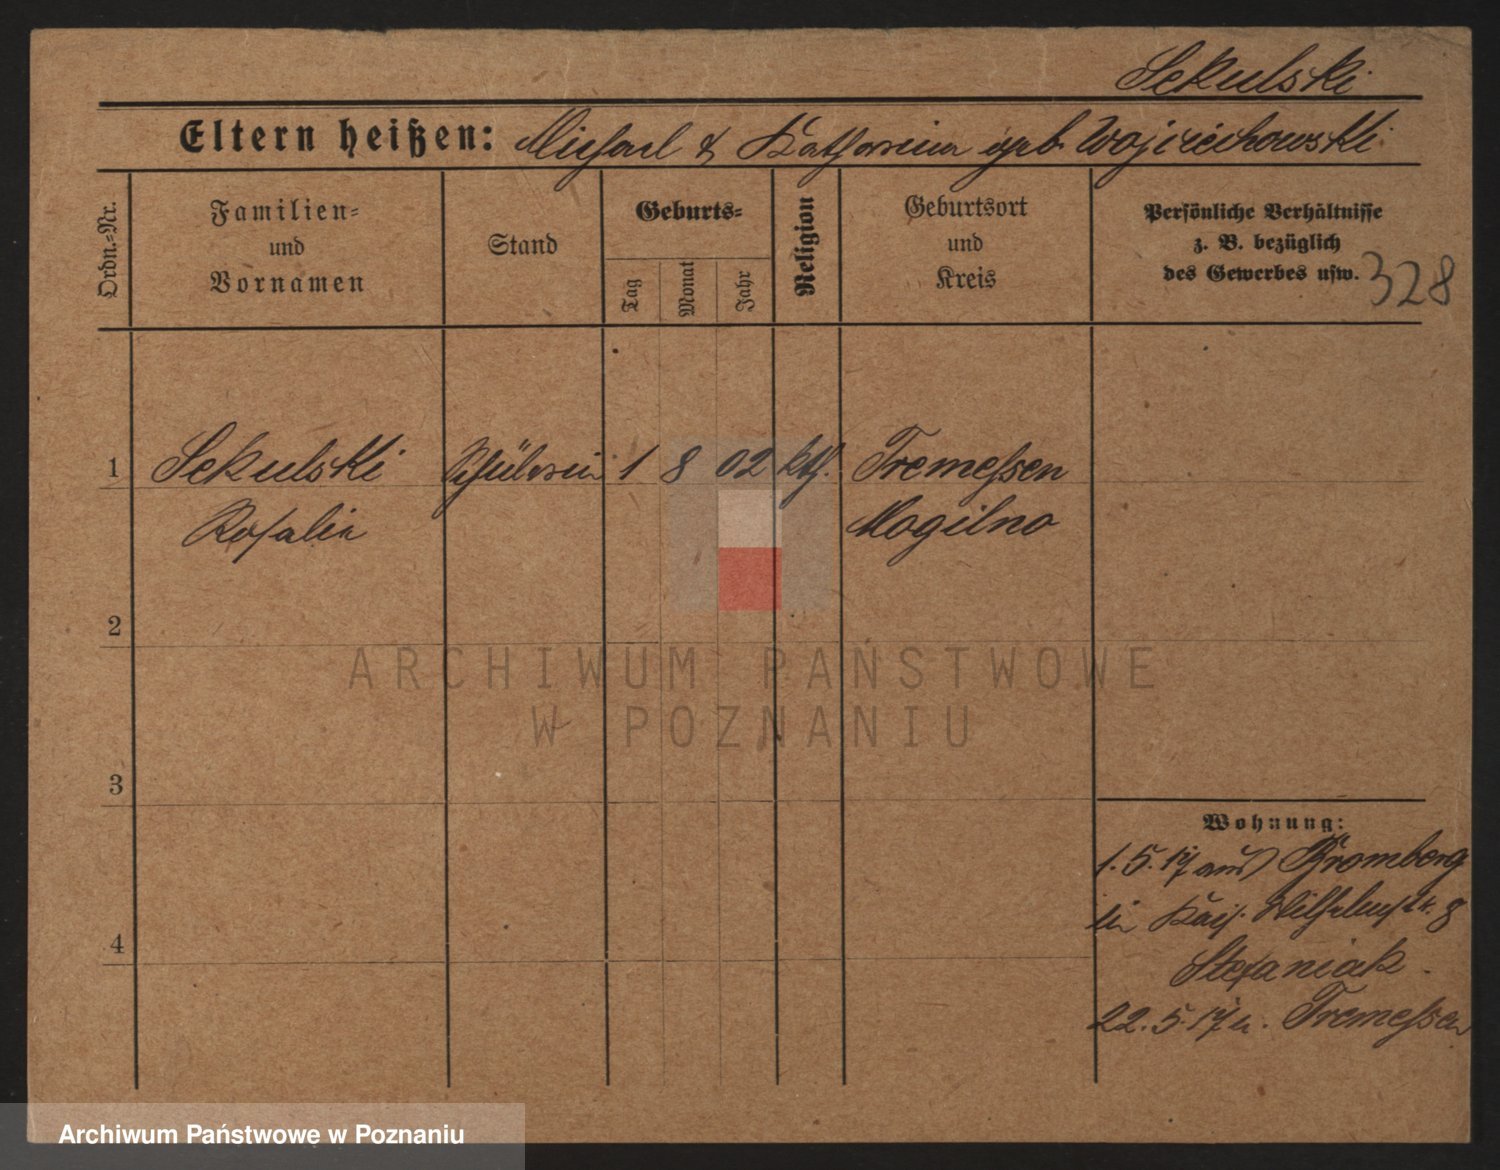 Sekulski
Eltern heißen: Michael & Katharina geb. Wojciechowski
Ordn.-Nr.
Familien-
und
Vornamen
Stand
Geburts-
Tag
Monat
Jahr
Religion
Geburtsort
und
Kreis
Persönliche Verhältnisse
z. B. bezüglich
des Gewerbes usw.
328
1 Sekulski Schülerin 1 8 02 kth. Tremessen
Rosalie Mogilno
2
3
4
ARCHIWUM PAŃSTWOWE
W POZNANIU
Wohnung:
1.5.17 aus Bromberg
in Kais. Wilhelmstr. 8
Stefaniak.
22.5.17 n. Tremessen
Archiwum Państwowe w Poznaniu